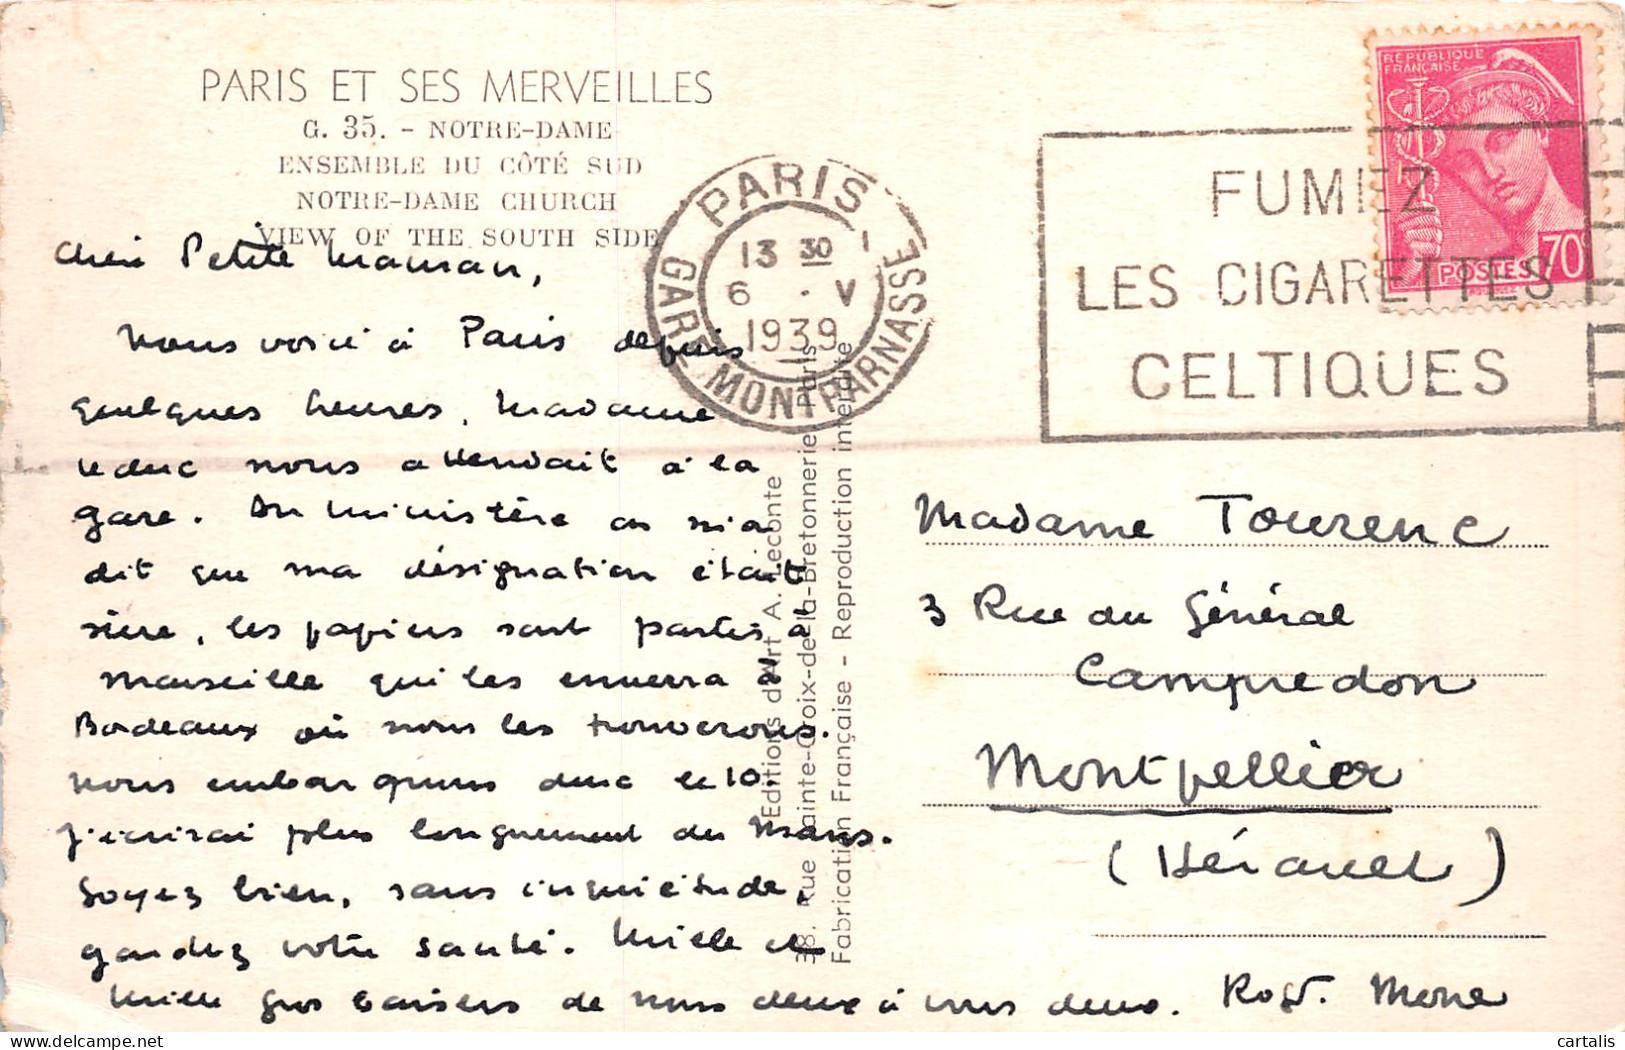 PARIS ET SES MERVEILLES
G. 35. - NOTRE-DAME
ENSEMBLE DU CÔTÉ SUD
NOTRE-DAME CHURCH
VIEW OF THE SOUTH SIDE
RÉPUBLIQUE
FRANÇAISE
POSTES 70c
PARIS
13 30
6 · V
1939
GARE MONTPARNASSE
FUMEZ
LES CIGARETTES
CELTIQUES
Petite Maman,
Nous voici à Paris depuis
quelques heures. Madame
Leduc nous attendait à la
gare. Au ministère on m'a
dit que ma désignation était
sûre, les papiers sont partis à
Marseille qui les enverra à
Bordeaux où nous les trouverons.
Nous embarquons donc le 10.
J'écrirai plus longuement du Mans.
Soyez bien, sans inquiétude,
gardez votre santé. Mille et
Mille gros baisers de nous deux à vous deux. Mone
Madame Tourenc
3 Rue du Général
Campredon
Montpellier
(Hérault)
Editions d'Art A. Leconte
38, Rue Sainte-Croix-de-la-Bretonnerie Paris
Fabrication Française - Reproduction interdite
cartalis